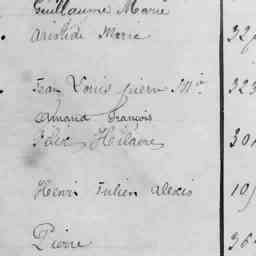 Guillaume Marie
Aristide Marie
Jean Louis Pierre M^ie 323
Armand François
Félix Hilaire 301
Henri Julien Alexis 10
Pierre 36